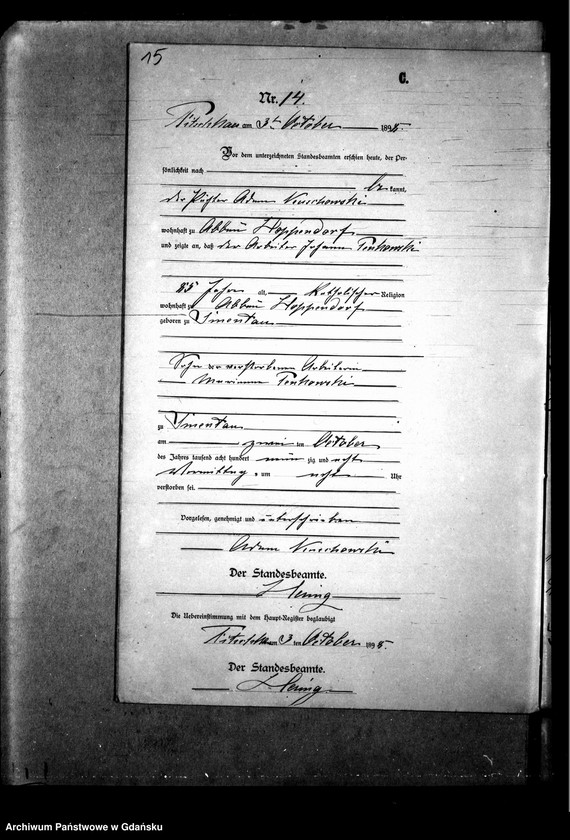 15
C.
Nr. 14.
am 3ten October 1898.
Vor dem unterzeichneten Standesbeamten erschien heute, der Per-
sönlichkeit nach
be kannt,
der Adam
wohnhaft zu Abbau Hoppendorf
und zeigte an, daß der Arbeiter Johann
85 Jahre alt, katholischer Religion
wohnhaft zu Abbau Hoppendorf
geboren zu
Sohn der verstorbenen Arbeiterin
Marianna
zu
am zwei ten October
des Jahres tausend acht hundert neun zig und acht
Vormittag s um acht Uhr
verstorben sei.
Vorgelesen, genehmigt und unterschrieben
Adam
Der Standesbeamte.
Die Uebereinstimmung mit dem Haupt-Register beglaubigt
am 3 ten October 1898
Der Standesbeamte.
Archiwum Państwowe w Gdańsku